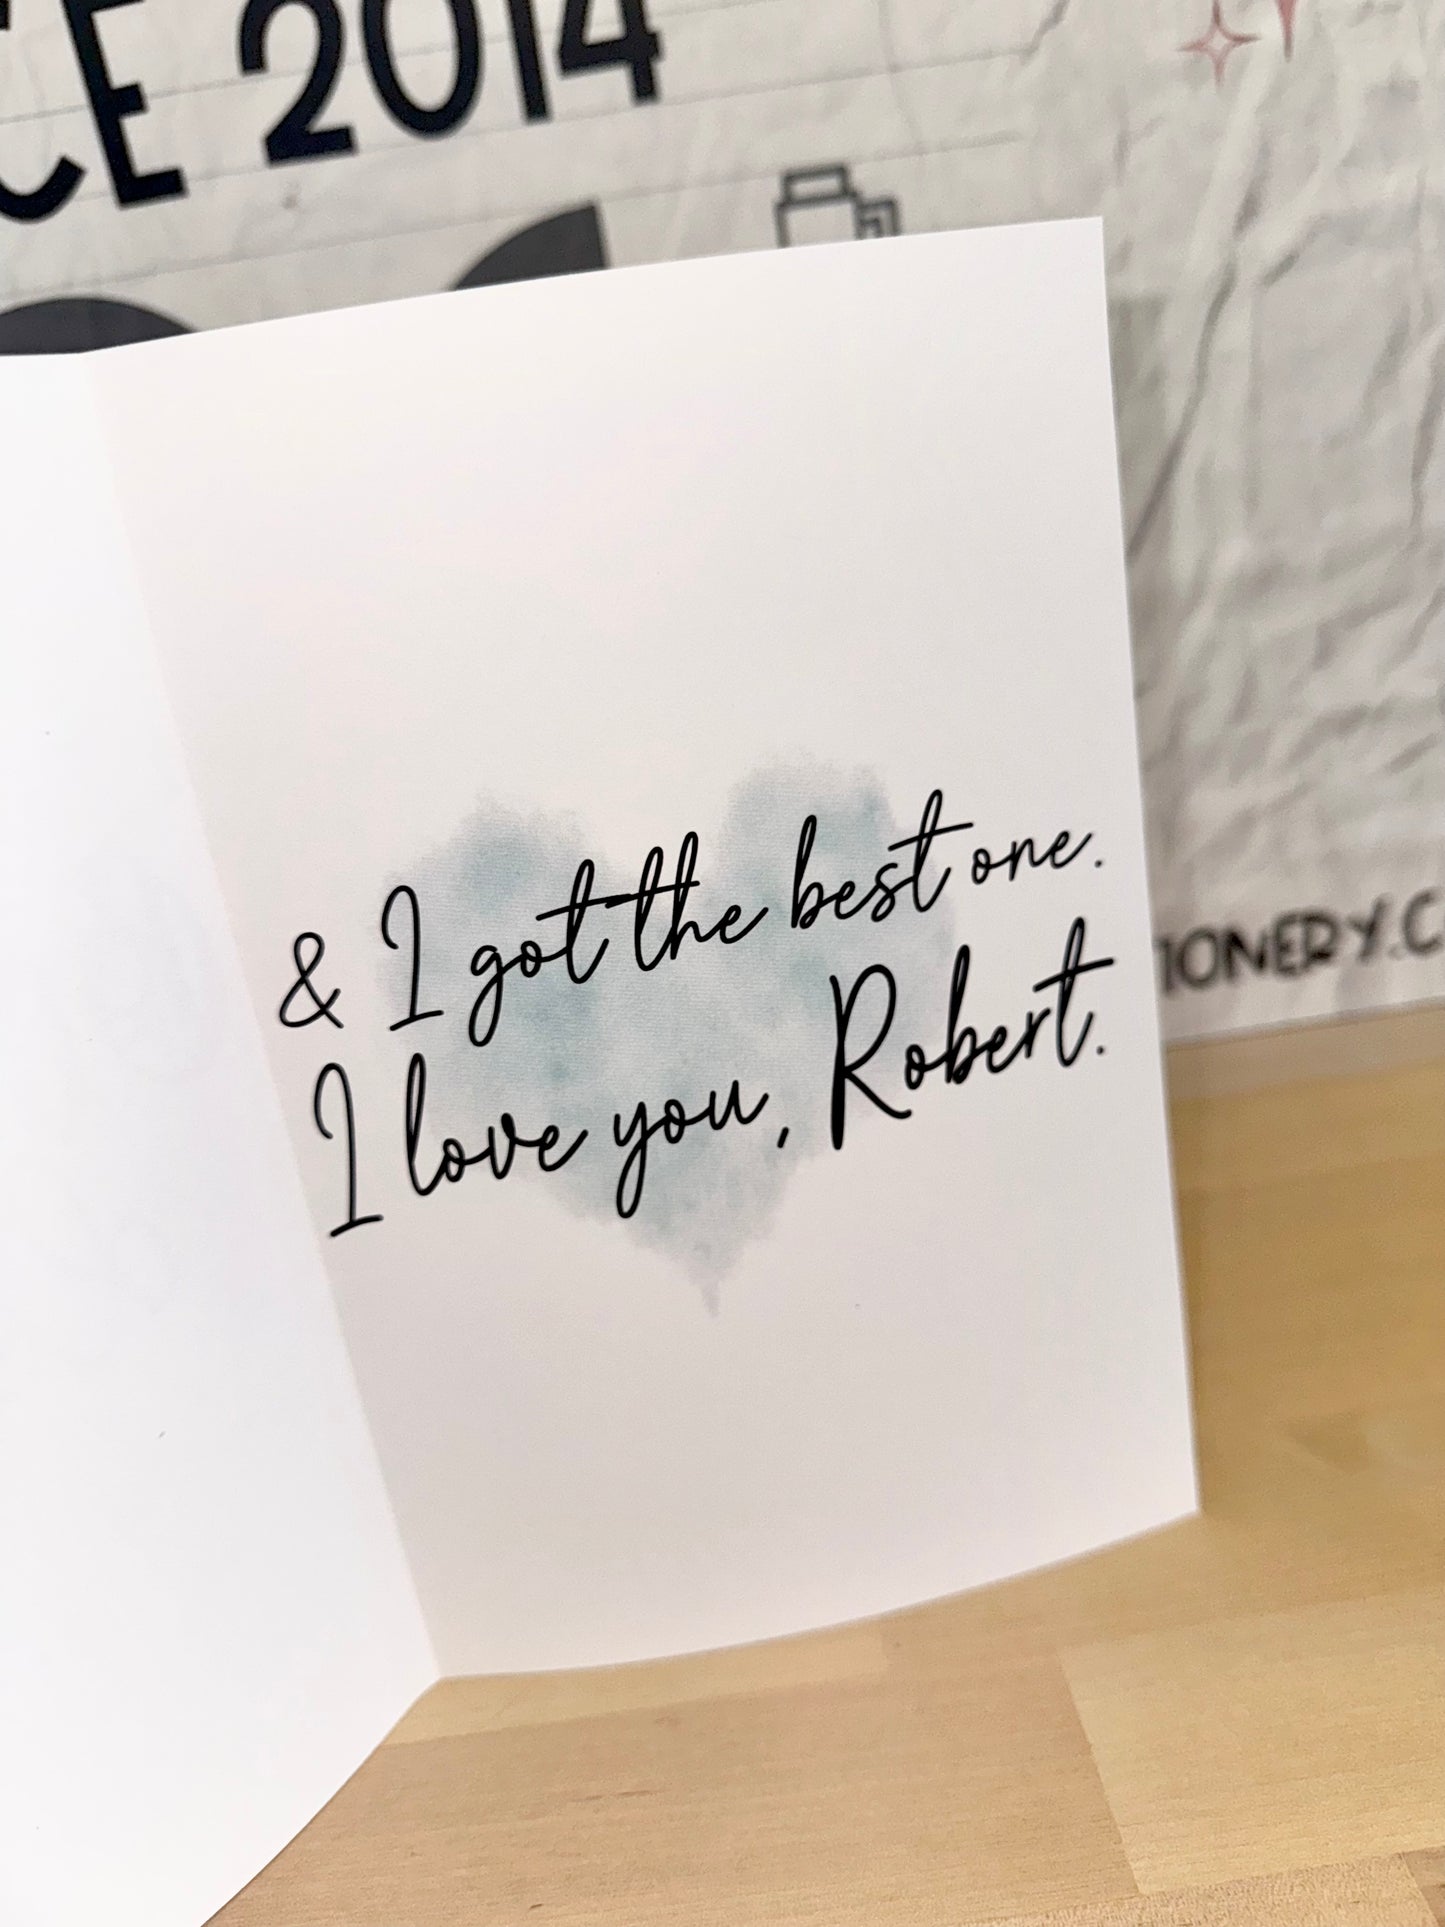 CE 2014
& I got the best one.
I love you, Robert.
TIONERY.C